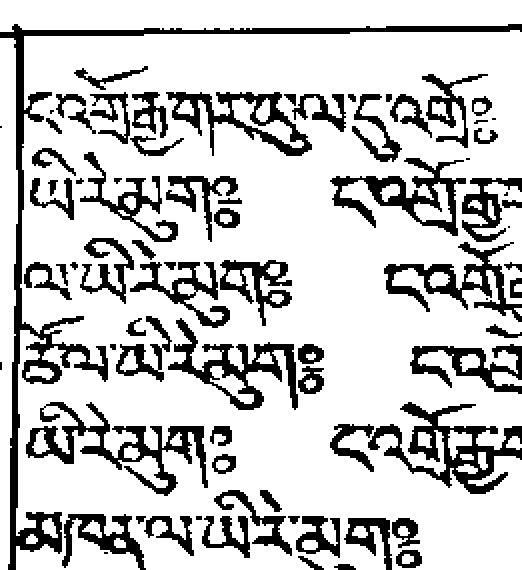 ང་འགྲོ་རྒྱ་གར་ཡུལ་དུ་འགྲོ༔
ཡི་རེ་མུག༔ ང་འགྲོ་རྒྱ
ལ་ཡི་རེ་མུག༔ ང་འགྲོ
ལ་ཡི་རེ་མུག༔ ང་འ
ཡི་རེ་མུག༔ ང་འགྲོ་རྒྱ
མཁན་ལ་ཡི་རེ་མུག༔